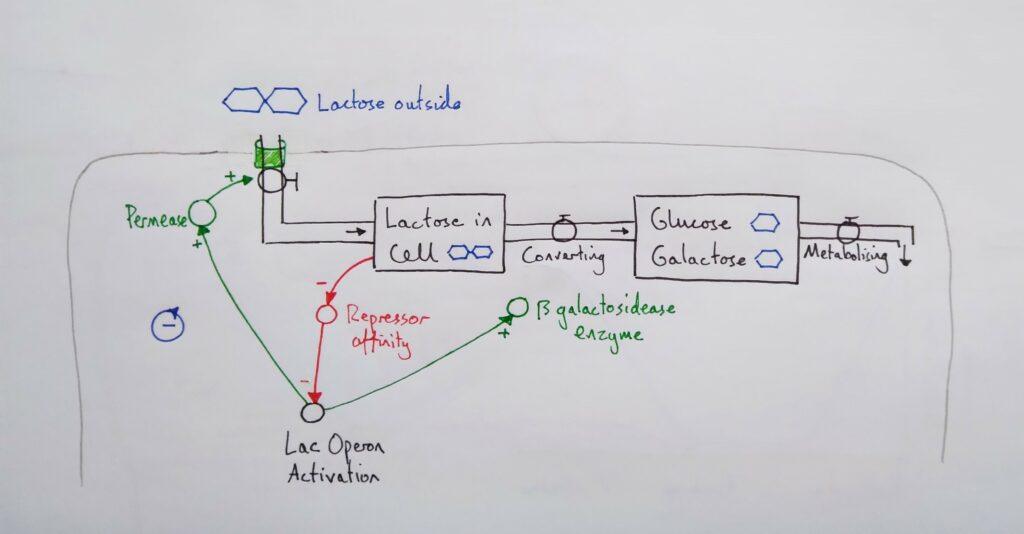 Lactose outside
+
Permease
+
Lactose in
Cell
Converting
Glucose
Galactose
Metabolising
-
Repressor
affinity
-
B galactosidease
enzyme
+
-
Lac Operon
Activation